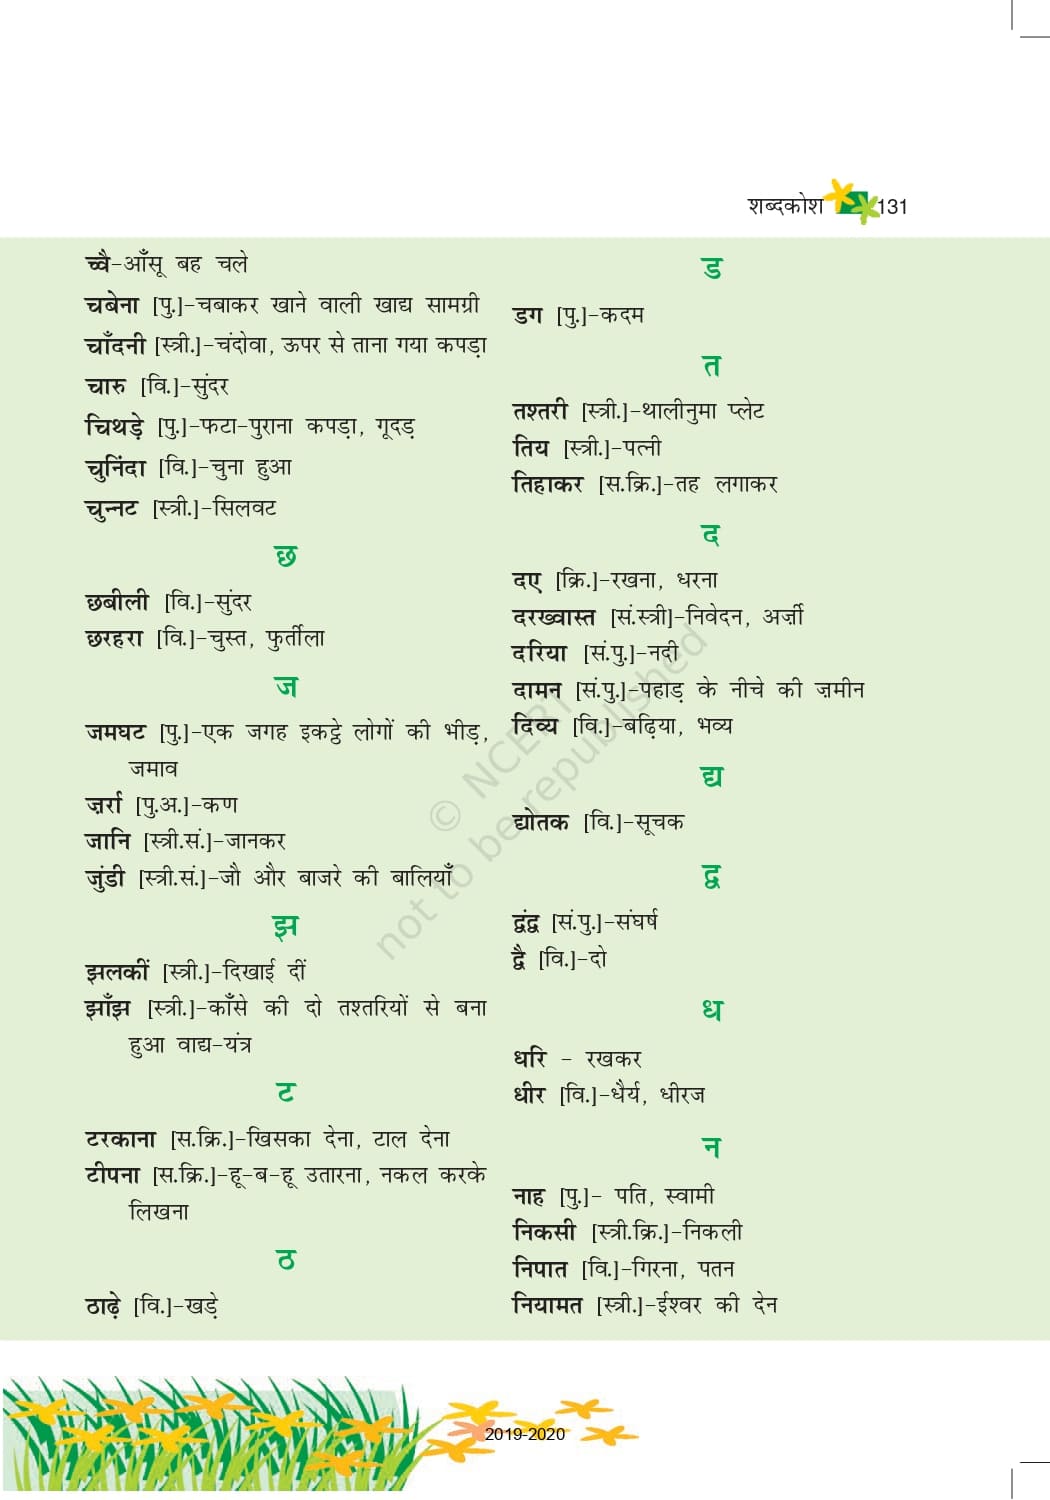 शब्दकोश 131
च्वै–आँसू बह चले
चबेना [पु.]–चबाकर खाने वाली खाद्य सामग्री
चाँदनी [स्त्री.]–चंदोवा, ऊपर से ताना गया कपड़ा
चारु [वि.]–सुंदर
चिथड़े [पु.]–फटा–पुराना कपड़ा, गूदड़
चुनिंदा [वि.]–चुना हुआ
चुन्नट [स्त्री.]–सिलवट
छ
छबीली [वि.]–सुंदर
छरहरा [वि.]–चुस्त, फुर्तीला
ज
जमघट [पु.]–एक जगह इकट्ठे लोगों की भीड़,
जमाव
ज़र्रा [पु.अ.]–कण
जानि [स्त्री.सं.]–जानकर
जुंडी [स्त्री.सं.]–जौ और बाजरे की बालियाँ
झ
झलकीं [स्त्री.]–दिखाई दीं
झाँझ [स्त्री.]–काँसे की दो तश्तरियों से बना
हुआ वाद्य–यंत्र
ट
टरकाना [स.क्रि.]–खिसका देना, टाल देना
टीपना [स.क्रि.]–हू–ब–हू उतारना, नकल करके
लिखना
ठ
ठाढ़े [वि.]–खड़े
ड
डग [पु.]–कदम
त
तश्तरी [स्त्री.]–थालीनुमा प्लेट
तिय [स्त्री.]–पत्नी
तिहाकर [स.क्रि.]–तह लगाकर
द
दए [क्रि.]–रखना, धरना
दरख्वास्त [सं.स्त्री]–निवेदन, अर्ज़ी
दरिया [सं.पु.]–नदी
दामन [सं.पु.]–पहाड़ के नीचे की ज़मीन
दिव्य [वि.]–बढ़िया, भव्य
द्य
द्योतक [वि.]–सूचक
द्व
द्वंद्व [सं.पु.]–संघर्ष
द्वै [वि.]–दो
ध
धरि – रखकर
धीर [वि.]–धैर्य, धीरज
न
नाह [पु.]– पति, स्वामी
निकसी [स्त्री.क्रि.]–निकली
निपात [वि.]–गिरना, पतन
नियामत [स्त्री.]–ईश्वर की देन
© NCERT
not to be republished
2019-2020